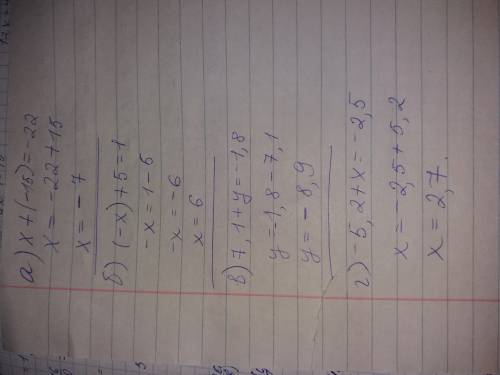 а) x + (-15) = -22
x = -22 + 15
x = -7
б) (-x) + 5 = 1
-x = 1 - 5
-x = -6
x = 6
в) 7,1 + y = -1,8
y = -1,8 - 7,1
y = -8,9
г) -5,2 + x = -2,5
x = -2,5 + 5,2
x = 2,7.